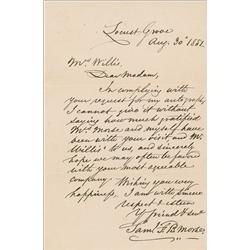 Locust Grove
Aug. 30th 1851.
Mrs. Willis.
Dear Madam,
In complying with
your request for my autograph,
I cannot give it without
saying how much gratified
Mrs. Morse and myself have
been with your visit and Mr.
Willis' to us, and sincerely
hope we may often be favored
with your most agreeable
company. Wishing you every
happiness, I am with sincere
respect & esteem
Yr friend & Servt
Saml. F. B. Morse.